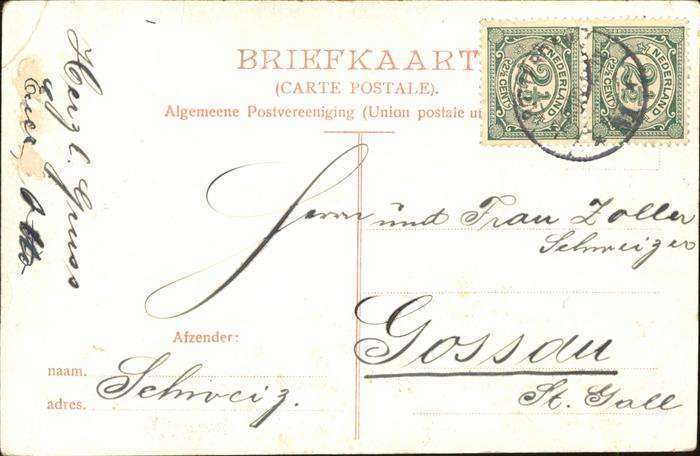 BRIEFKAART
(CARTE POSTALE).
Algemeene Postvereeniging (Union postale u
NEDERLAND
2½ CENT
NEDERLAND
2½ CENT
Herzl. Gruss
Otto
Herrn und Frau Zoller
Schweizer
Gossau
St. Gall
Afzender:
naam.
adres.
Schweiz.